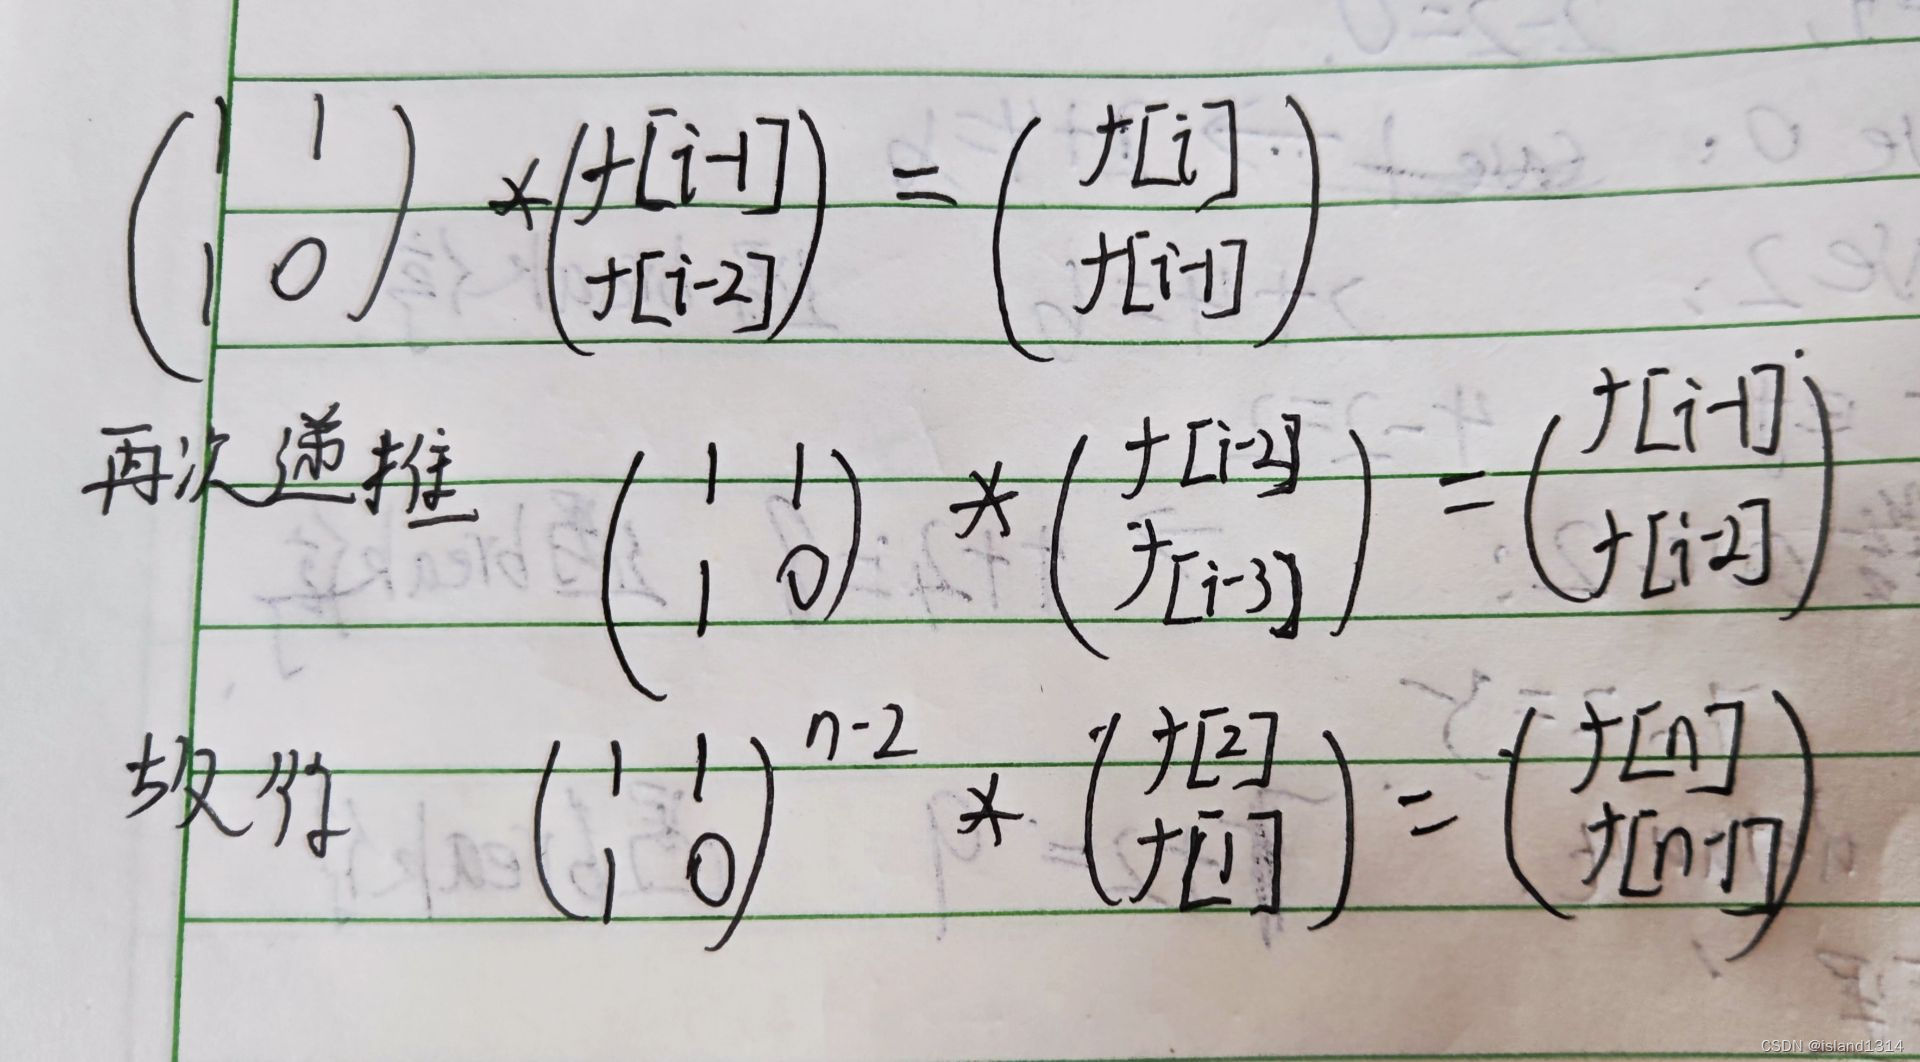 (1 1
1 0) * (f[i-1]
f[i-2]) = (f[i]
f[i-1])
再次递推 (1 1
1 0) * (f[i-2]
f[i-3]) = (f[i-1]
f[i-2])
故得 (1 1
1 0)^n-2 * (f[2]
f[1]) = (f[n]
f[n-1])
CSDN @island1314